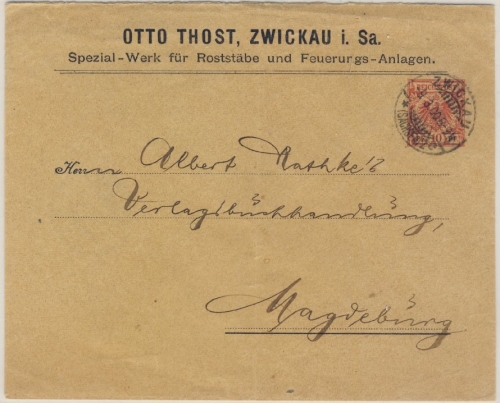 OTTO THOST, ZWICKAU i. Sa.
Spezial-Werk für Roststäbe und Feuerungs-Anlagen.
ZWICKAU
10
Herrn Albert Rathke's
Verlagsbuchhandlung,
Magdeburg